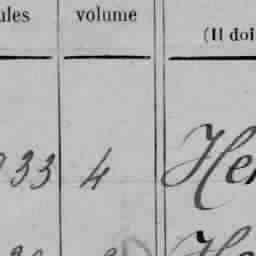 ules volume (Il doi
33 4 Her